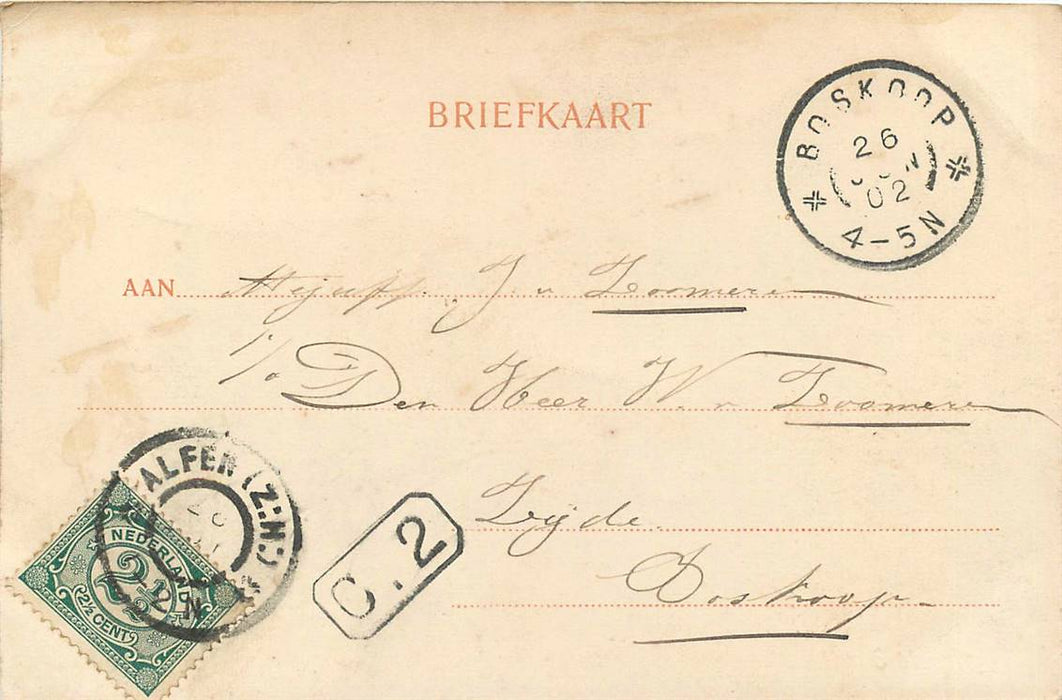 BRIEFKAART
BOSKOOP
26
JUN
02
4-5N
AAN Mejuff. J. v Zoomeren
p/a Den Heer W. v Zoomeren
Zijde
Boskoop
ALFEN (Z:H:)
NEDERLAND
2½
2½ CENT
C.2